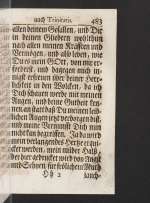 nach Trinitatis. 483
allen deinem Gefallen, und Dir
in deinen Gliedern wohlthun
nach allen meinen Kräften und
Vermögen, und also leben, wie
Du es mein GOtt, von mir er-
forderst, und dagegen mich in-
nigst erfreuen über deiner Herr-
lichkeit in den Wolken, da ich
Dich schauen werde mit meinen
Augen, und deine Gutheit ken-
nen, an statt daß Du meinen leib-
lichen Augen jetzt verborgen bist,
und meine Vernunft Dich nun
nicht kan begreiffen. Ja da wird
mein verlangendes Hertze erquic-
ket werden, mein milder Halß,
der hier gedrucket wird von Angst
und Schreyen, für frölichem Mund
Hh 2 jauch-